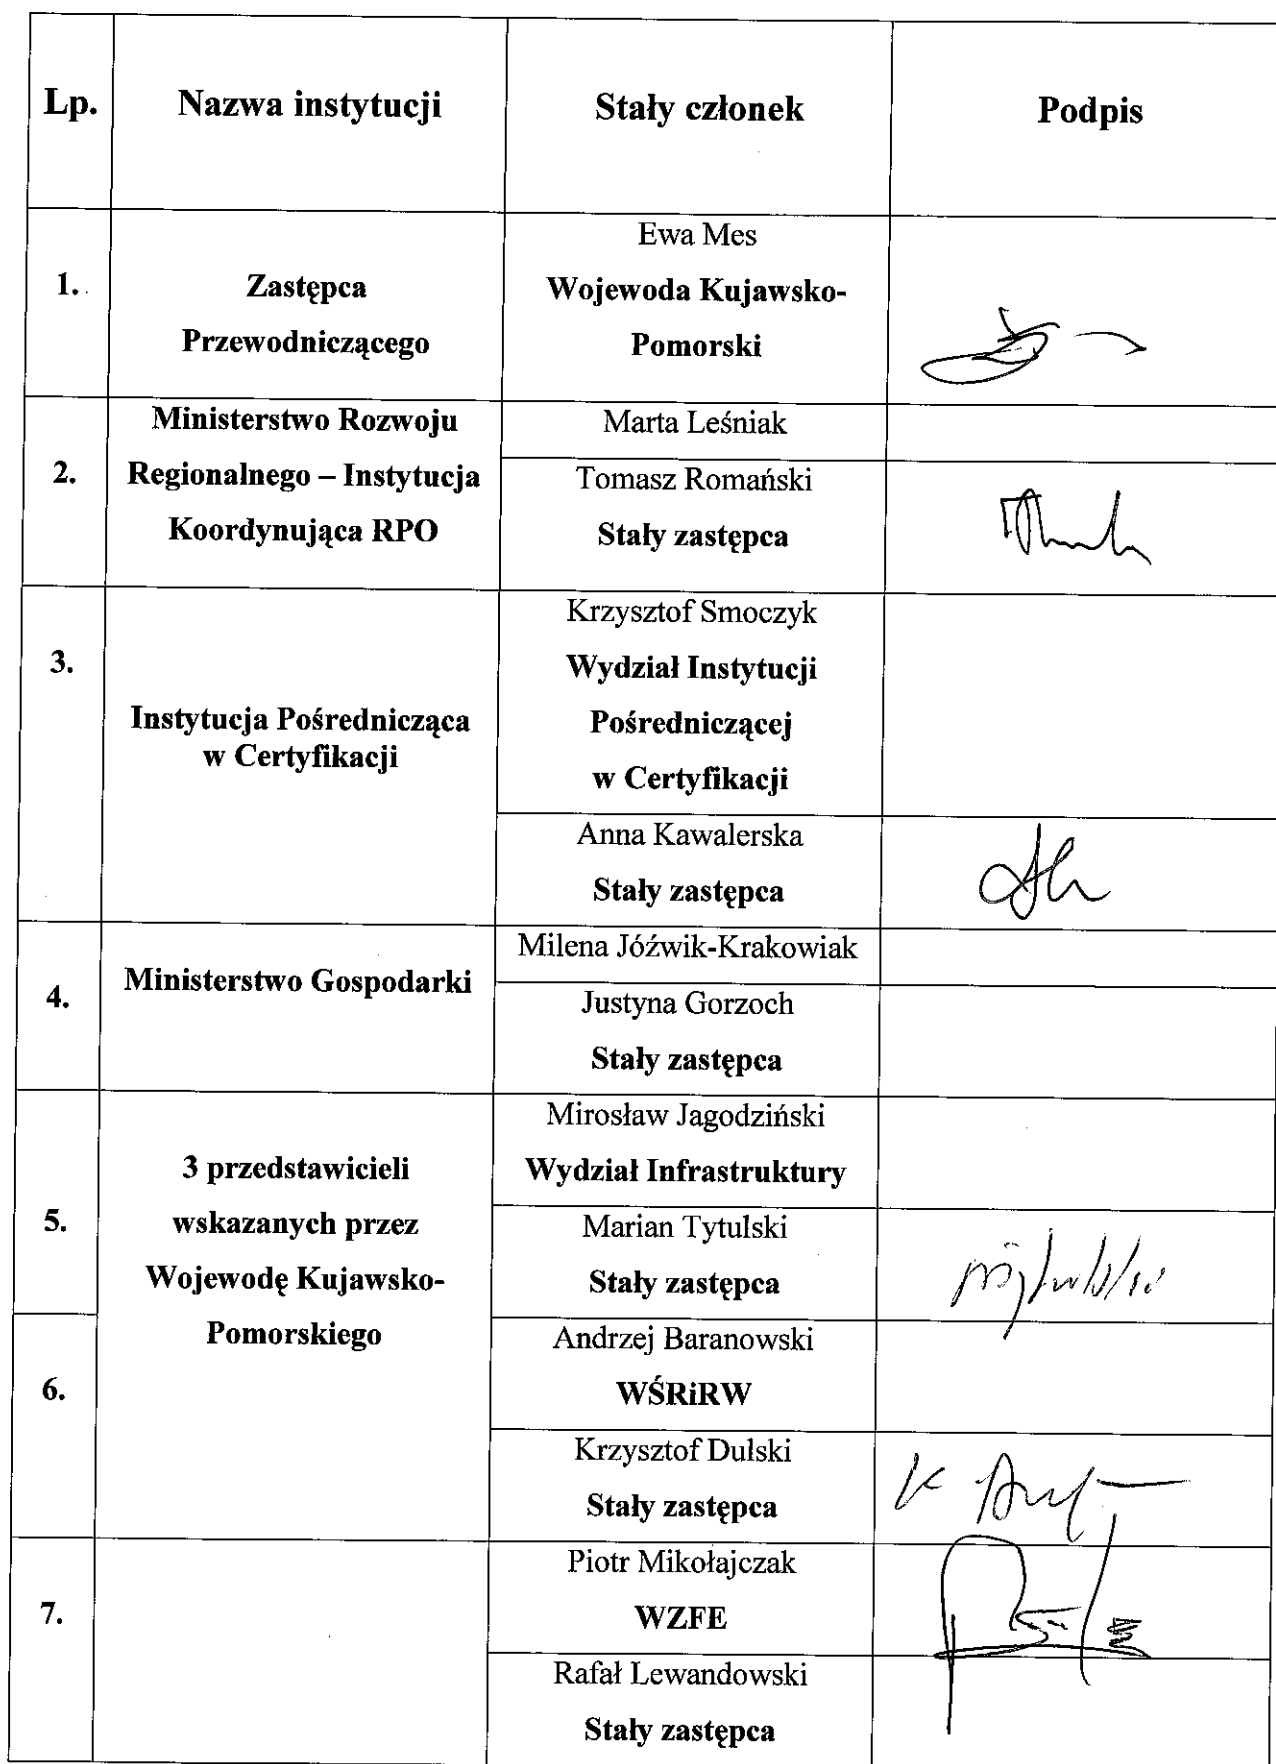 Lp.
Nazwa instytucji
Stały członek
Podpis
1.
Zastępca
Przewodniczącego
Ewa Mes
Wojewoda Kujawsko-
Pomorski
2.
Ministerstwo Rozwoju
Regionalnego – Instytucja
Koordynująca RPO
Marta Leśniak
Tomasz Romański
Stały zastępca
3.
Instytucja Pośrednicząca
w Certyfikacji
Krzysztof Smoczyk
Wydział Instytucji
Pośredniczącej
w Certyfikacji
Anna Kawalerska
Stały zastępca
4.
Ministerstwo Gospodarki
Milena Jóźwik-Krakowiak
Justyna Gorzoch
Stały zastępca
5.
3 przedstawicieli
wskazanych przez
Wojewodę Kujawsko-
Pomorskiego
Mirosław Jagodziński
Wydział Infrastruktury
Marian Tytulski
Stały zastępca
6.
Andrzej Baranowski
WŚRiRW
Krzysztof Dulski
Stały zastępca
7.
Piotr Mikołajczak
WZFE
Rafał Lewandowski
Stały zastępca